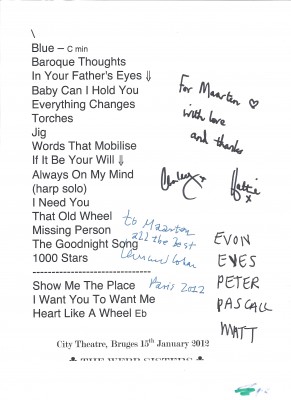 \
Blue – C min
Baroque Thoughts
In Your Father's Eyes ⇓
Baby Can I Hold You
Everything Changes
Torches
Jig
Words That Mobilise
If It Be Your Will ⇓
Always On My Mind
(harp solo)
I Need You
That Old Wheel
Missing Person
The Goodnight Song
1000 Stars
--------------------------------
Show Me The Place
I Want You To Want Me
Heart Like A Wheel Eb
City Theatre, Bruges 15th January 2012
THE WEBB SISTERS
For Maarten
with love
and thanks
Charley x
Hattie x
to Maarten
all the best
Paris 2012
EVON
EVES
PETER
PASCALL
MATT